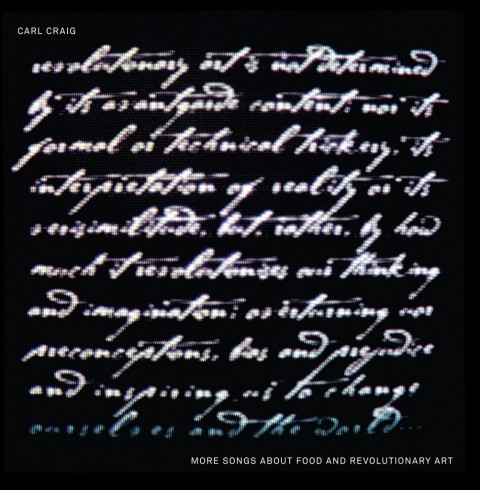 CARL CRAIG
revolutionary art is not determined
by its avantgarde content, nor its
formal or technical trickery, its
interpretation of reality or its
verisimilitude, but, rather, by how
much it revolutionises our thinking
and imagination; overturning our
preconceptions, bias and prejudice
and inspiring us to change
ourselves and the world...
MORE SONGS ABOUT FOOD AND REVOLUTIONARY ART